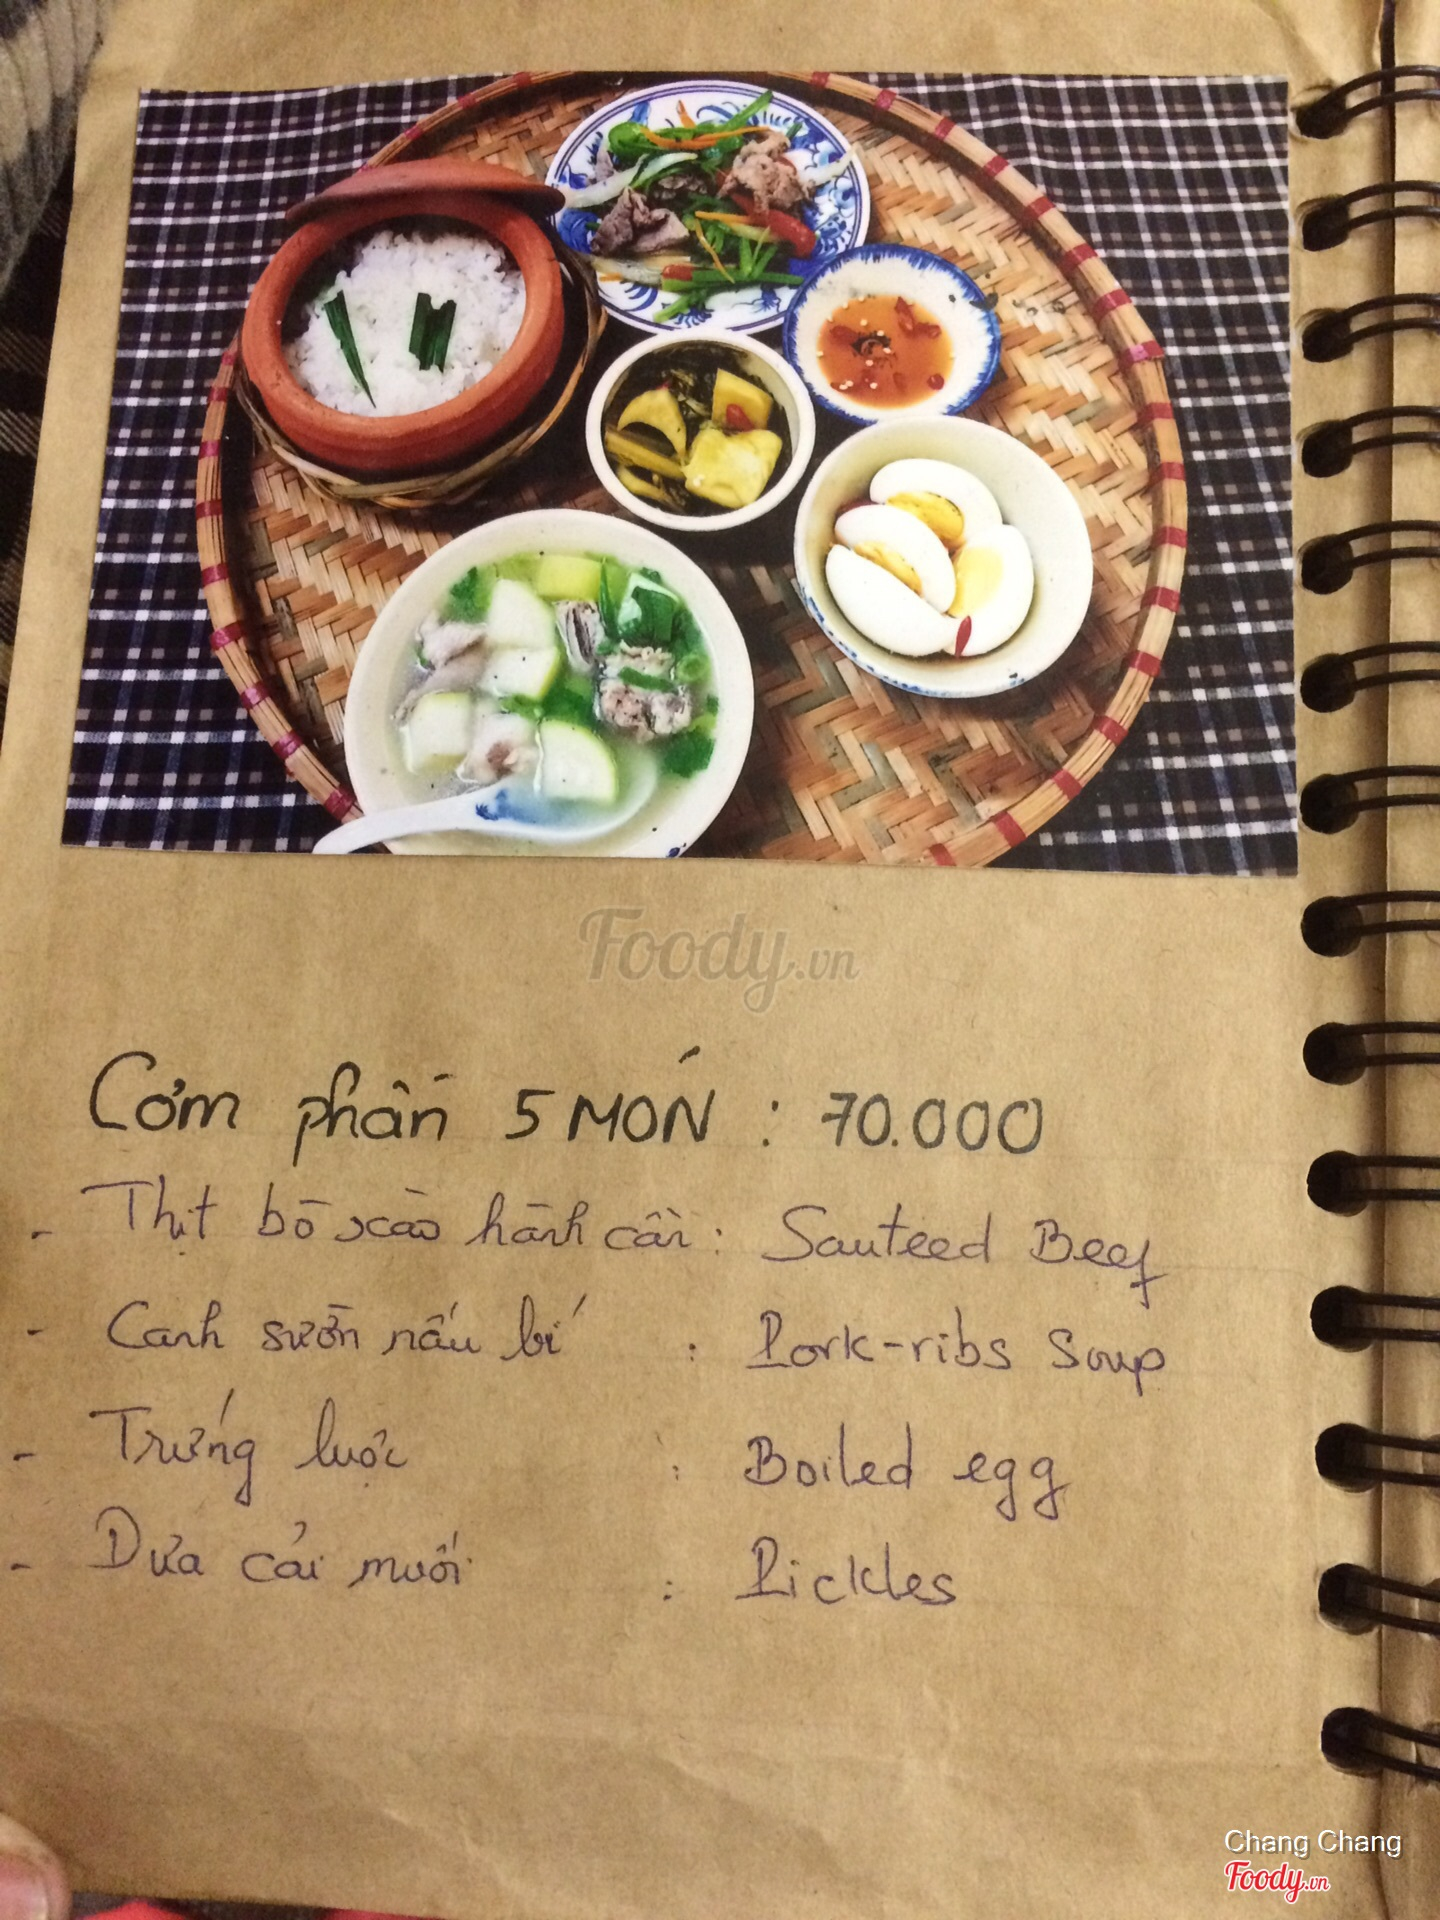 Foody.vn
Cơm phần 5 MÓN : 70.000
- Thịt bò xào hành cần : Sauteed Beef
- Canh sườn nấu bí : Pork-ribs Soup
- Trứng luộc : Boiled egg
- Dưa cải muối : Pickles
Chang Chang
Foody.vn